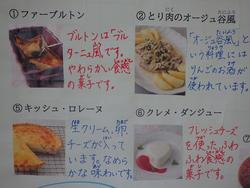 ①ファーブルトン
ブルトンは「ブル
ターニュ風」です。
やわらかい食感
の菓子です。
②とり肉のオージュ谷風
「オージュ谷風」と
いう料理には
りんごのお酒が
使われています。
⑤キッシュ・ロレーヌ
生クリーム、卵、
チーズが入って
います。なめら
かな味わいです。
⑥クレメ・ダンジュー
フレッシュチーズ
を使った、ふわ
ふわ食感の
菓子です。
⑦